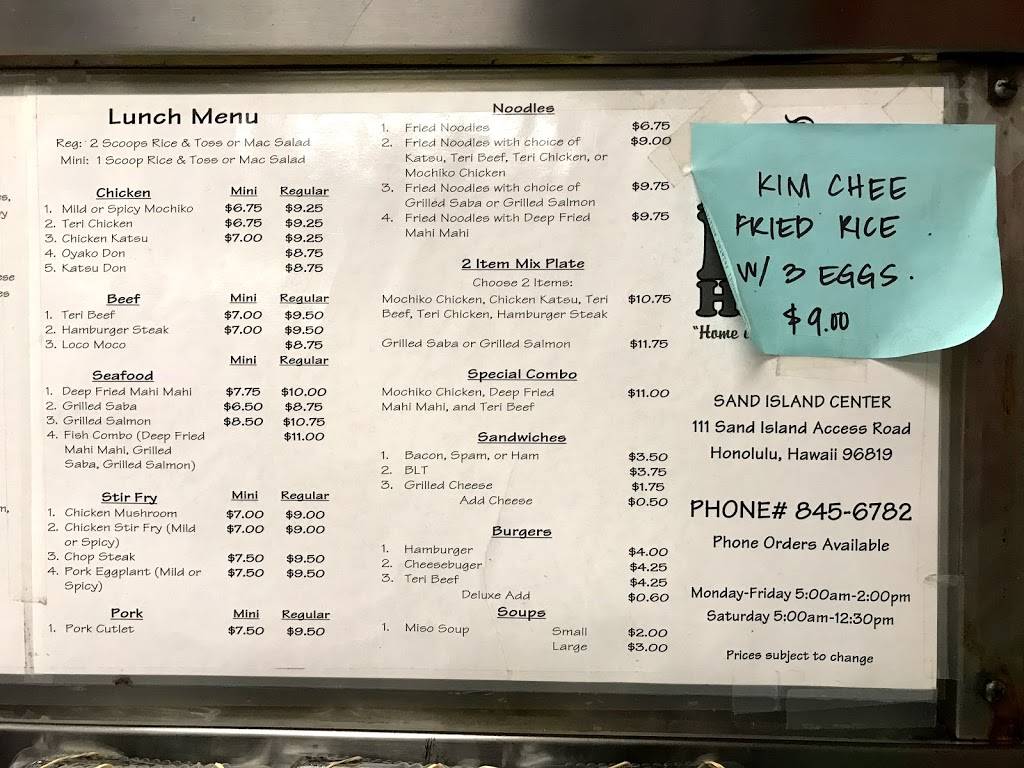 Lunch Menu
Reg: 2 Scoops Rice & Toss or Mac Salad
Mini: 1 Scoop Rice & Toss or Mac Salad
Chicken Mini Regular
1. Mild or Spicy Mochiko $6.75 $9.25
2. Teri Chicken $6.75 $9.25
3. Chicken Katsu $7.00 $9.25
4. Oyako Don $8.75
5. Katsu Don $8.75
Beef Mini Regular
1. Teri Beef $7.00 $9.50
2. Hamburger Steak $7.00 $9.50
3. Loco Moco $8.75
Mini Regular
Seafood
1. Deep Fried Mahi Mahi $7.75 $10.00
2. Grilled Saba $6.50 $8.75
3. Grilled Salmon $8.50 $10.75
4. Fish Combo (Deep Fried $11.00
Mahi Mahi, Grilled
Saba, Grilled Salmon)
Stir Fry Mini Regular
1. Chicken Mushroom $7.00 $9.00
2. Chicken Stir Fry (Mild $7.00 $9.00
or Spicy)
3. Chop Steak $7.50 $9.50
4. Pork Eggplant (Mild or $7.50 $9.50
Spicy)
Pork Mini Regular
1. Pork Cutlet $7.50 $9.50
Noodles
1. Fried Noodles $6.75
2. Fried Noodles with choice of $9.00
Katsu, Teri Beef, Teri Chicken, or
Mochiko Chicken
3. Fried Noodles with choice of $9.75
Grilled Saba or Grilled Salmon
4. Fried Noodles with Deep Fried $9.75
Mahi Mahi
2 Item Mix Plate
Choose 2 Items:
Mochiko Chicken, Chicken Katsu, Teri $10.75
Beef, Teri Chicken, Hamburger Steak
Grilled Saba or Grilled Salmon $11.75
Special Combo
Mochiko Chicken, Deep Fried $11.00
Mahi Mahi, and Teri Beef
Sandwiches
1. Bacon, Spam, or Ham $3.50
2. BLT $3.75
3. Grilled Cheese $1.75
Add Cheese $0.50
Burgers
1. Hamburger $4.00
2. Cheesebuger $4.25
3. Teri Beef $4.25
Deluxe Add $0.60
Soups
1. Miso Soup Small $2.00
Large $3.00
KIM CHEE
FRIED RICE
W/ 3 EGGS.
$9.00
"Home
SAND ISLAND CENTER
111 Sand Island Access Road
Honolulu, Hawaii 96819
PHONE# 845-6782
Phone Orders Available
Monday-Friday 5:00am-2:00pm
Saturday 5:00am-12:30pm
Prices subject to change